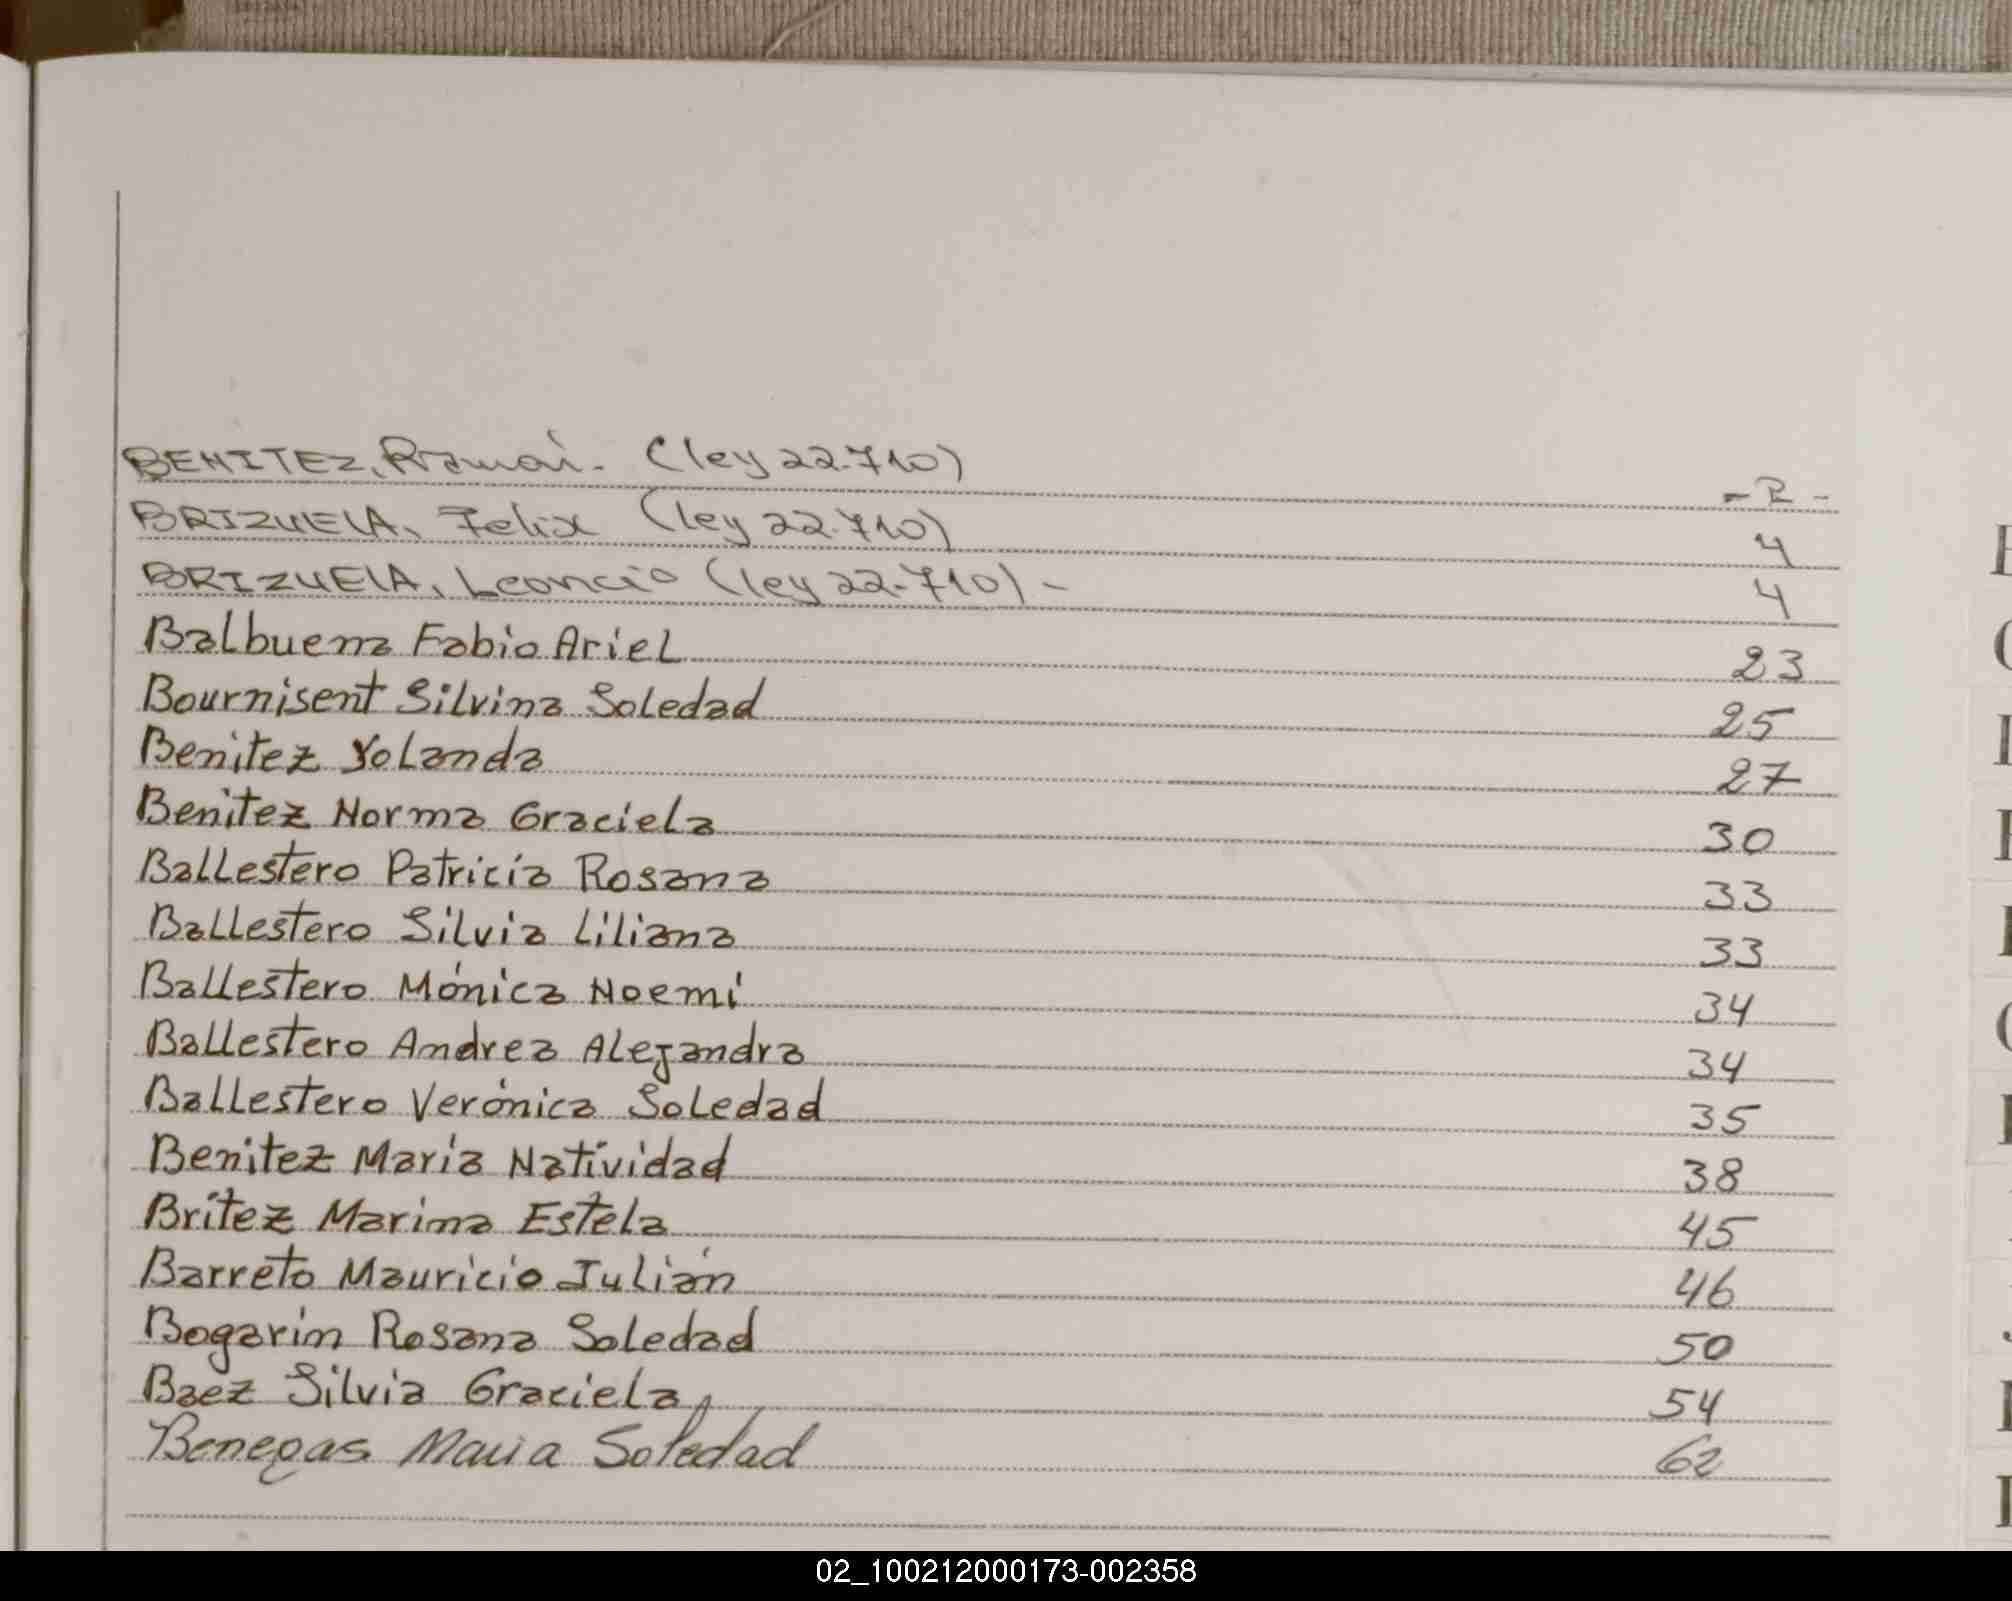 BENITEZ, Ramón. (ley 22.710) - 2 -
BRIZUELA, Felix (ley 22.710) 4
BRIZUELA, Leoncio (ley 22.710) - 4
Balbuena Fabio Ariel 23
Bournisent Silvina Soledad 25
Benitez Yolanda 27
Benitez Norma Graciela 30
Ballestero Patricia Rosana 33
Ballestero Silvia Liliana 33
Ballestero Mónica Noemí 34
Ballestero Andrea Alejandra 34
Ballestero Verónica Soledad 35
Benitez María Natividad 38
Britez Marina Estela 45
Barreto Mauricio Julián 46
Bogarin Rosana Soledad 50
Baez Silvia Graciela 54
Benegas Maria Soledad 62
02_100212000173-002358